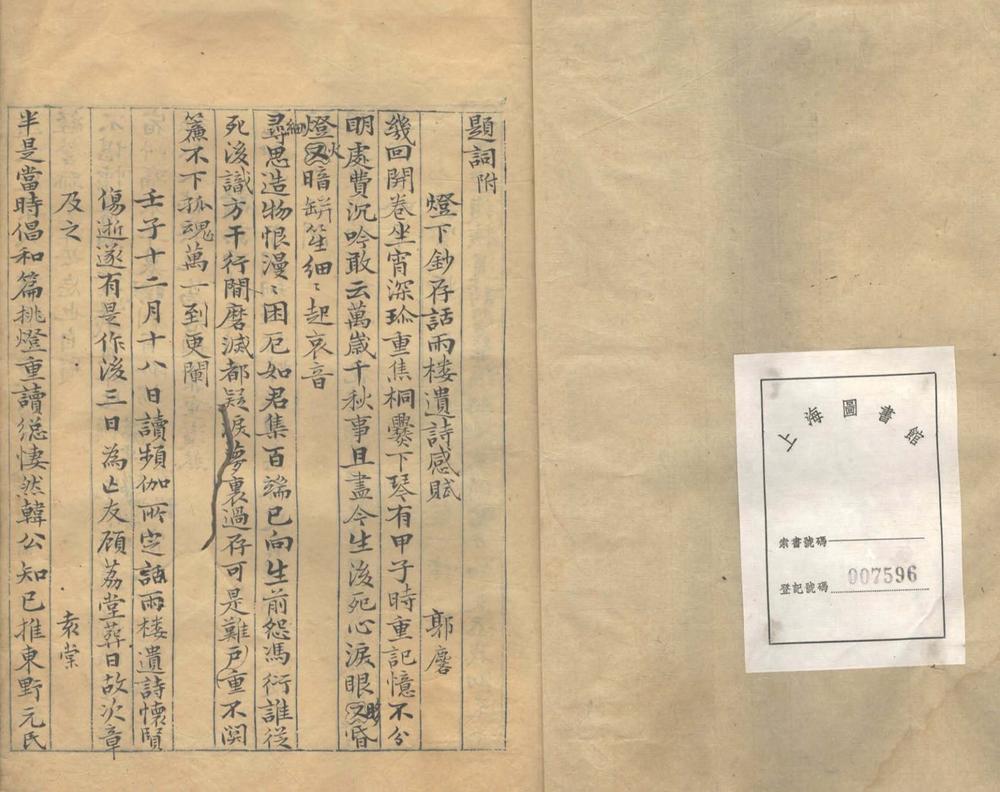 題詞附
燈下鈔存話雨楼遺詩感賦 郭麐
幾回開卷坐宵深珎重焦桐爨下琴有甲子時重記憶不分
明處費沉吟敢云萬歲千秋事且盡今生後死心淚眼眵昏
燈火暗缾笙細〻起哀音
尋思造物恨漫〻困厄如君集百端已向生前怨馮衍誰從
死後識方干行間磨滅都疑淚夢裏過存可是難戶重不関
簾不下孤魂萬一到更闌
壬子十二月十八日讀頻伽所定話雨楼遺詩懷賢
傷逝遂有是作後三日為亡友顾荔堂葬日故次章
及之 袁棠
半是當時倡和篇桃燈重讀總悽然韓公知已推東野元氏
上海圖書館
索書號碼
登記號碼 007596